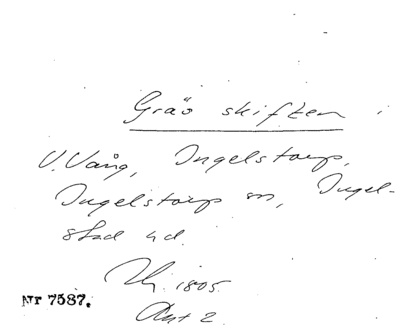 Gräö skiften i
V. Vång, Ingelstorp,
Ingelstorp sn, Ingel-
stad hd.
1805.
Nr 7587.
Akt 2